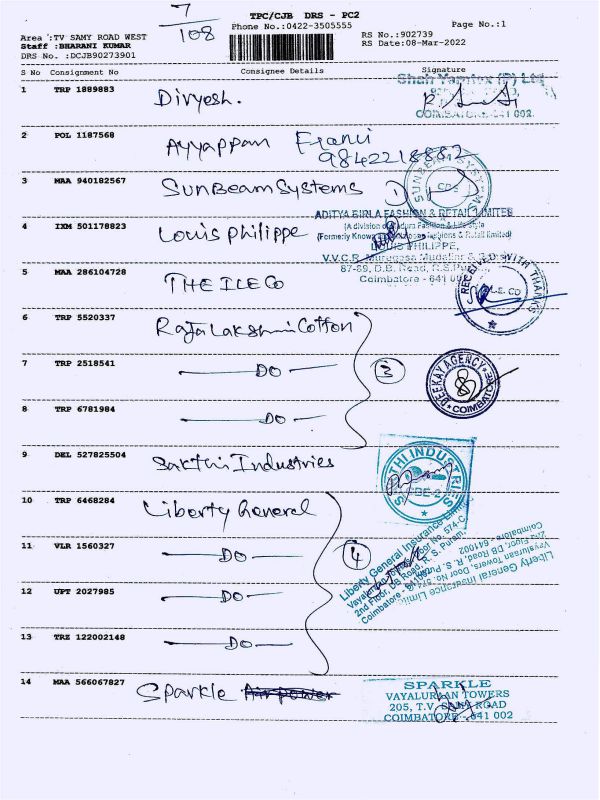 7
108
TPC/CJB DRS - PC2
Phone No.:0422-3505555
Page No.:1
Area :TV SAMY ROAD WEST
Staff :BHARANI KUMAR
DRS No. :DCJB90273901
RS No.:902739
RS Date:08-Mar-2022
S No Consignment No Consignee Details Signature
1 TRP 1889883 Divyesh.
COIMBATORE-641 002.
2 POL 1187568 Ayyappan
9842218882
3 MAA 940182567 SunBeam Systems
SUNBEAM SYSTEMS
4 IXM 501178823 Louis Philippe
ADITYA BIRLA FASHION & RETAIL LIMITED
(A division of Madura Fashion & Lifestyle
LOUIS PHILIPPE,
87-89, D.B. Road, R.S.Puram,
Coimbatore - 641 002
5 MAA 286104728 THE ILE CO
RECEIVED WITH THANKS
I.L.E. CO
6 TRP 5520337 Rajalakshmi Cotton
7 TRP 2518541 DO 3
DEEKAY AGENCY
COIMBATORE
8 TRP 6781984 DO
9 DEL 527825504 Sakthi Industries
SAKTHI INDUSTRIES
CBE-2
10 TRP 6468284 Liberty General
11 VLR 1560327 DO 4
Liberty General Insurance Limited
2nd Floor, DB Road, R. S. Puram,
Coimbatore - 641002
Liberty General Insurance Limited
Vayaluraan Towers, Door No. 574-
2nd Floor, DB Road, R. S. Puram
Coimbatore - 641002
12 UPT 2027985 DO
13 TRZ 122002148 DO
14 MAA 566067827 Sparkle Airpower
SPARKLE
VAYALURAAN TOWERS
205, T.V. SAMY ROAD
COIMBATORE - 641 002